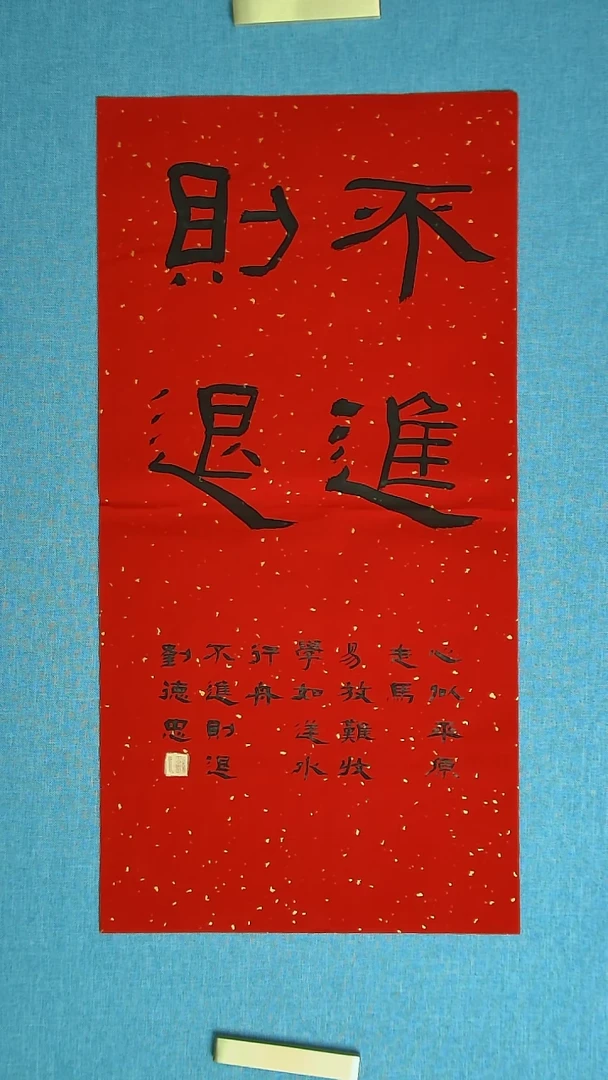 不進
則退
心似平原
走馬
易放難收
學如逆水
行舟
不進則退
劉德思